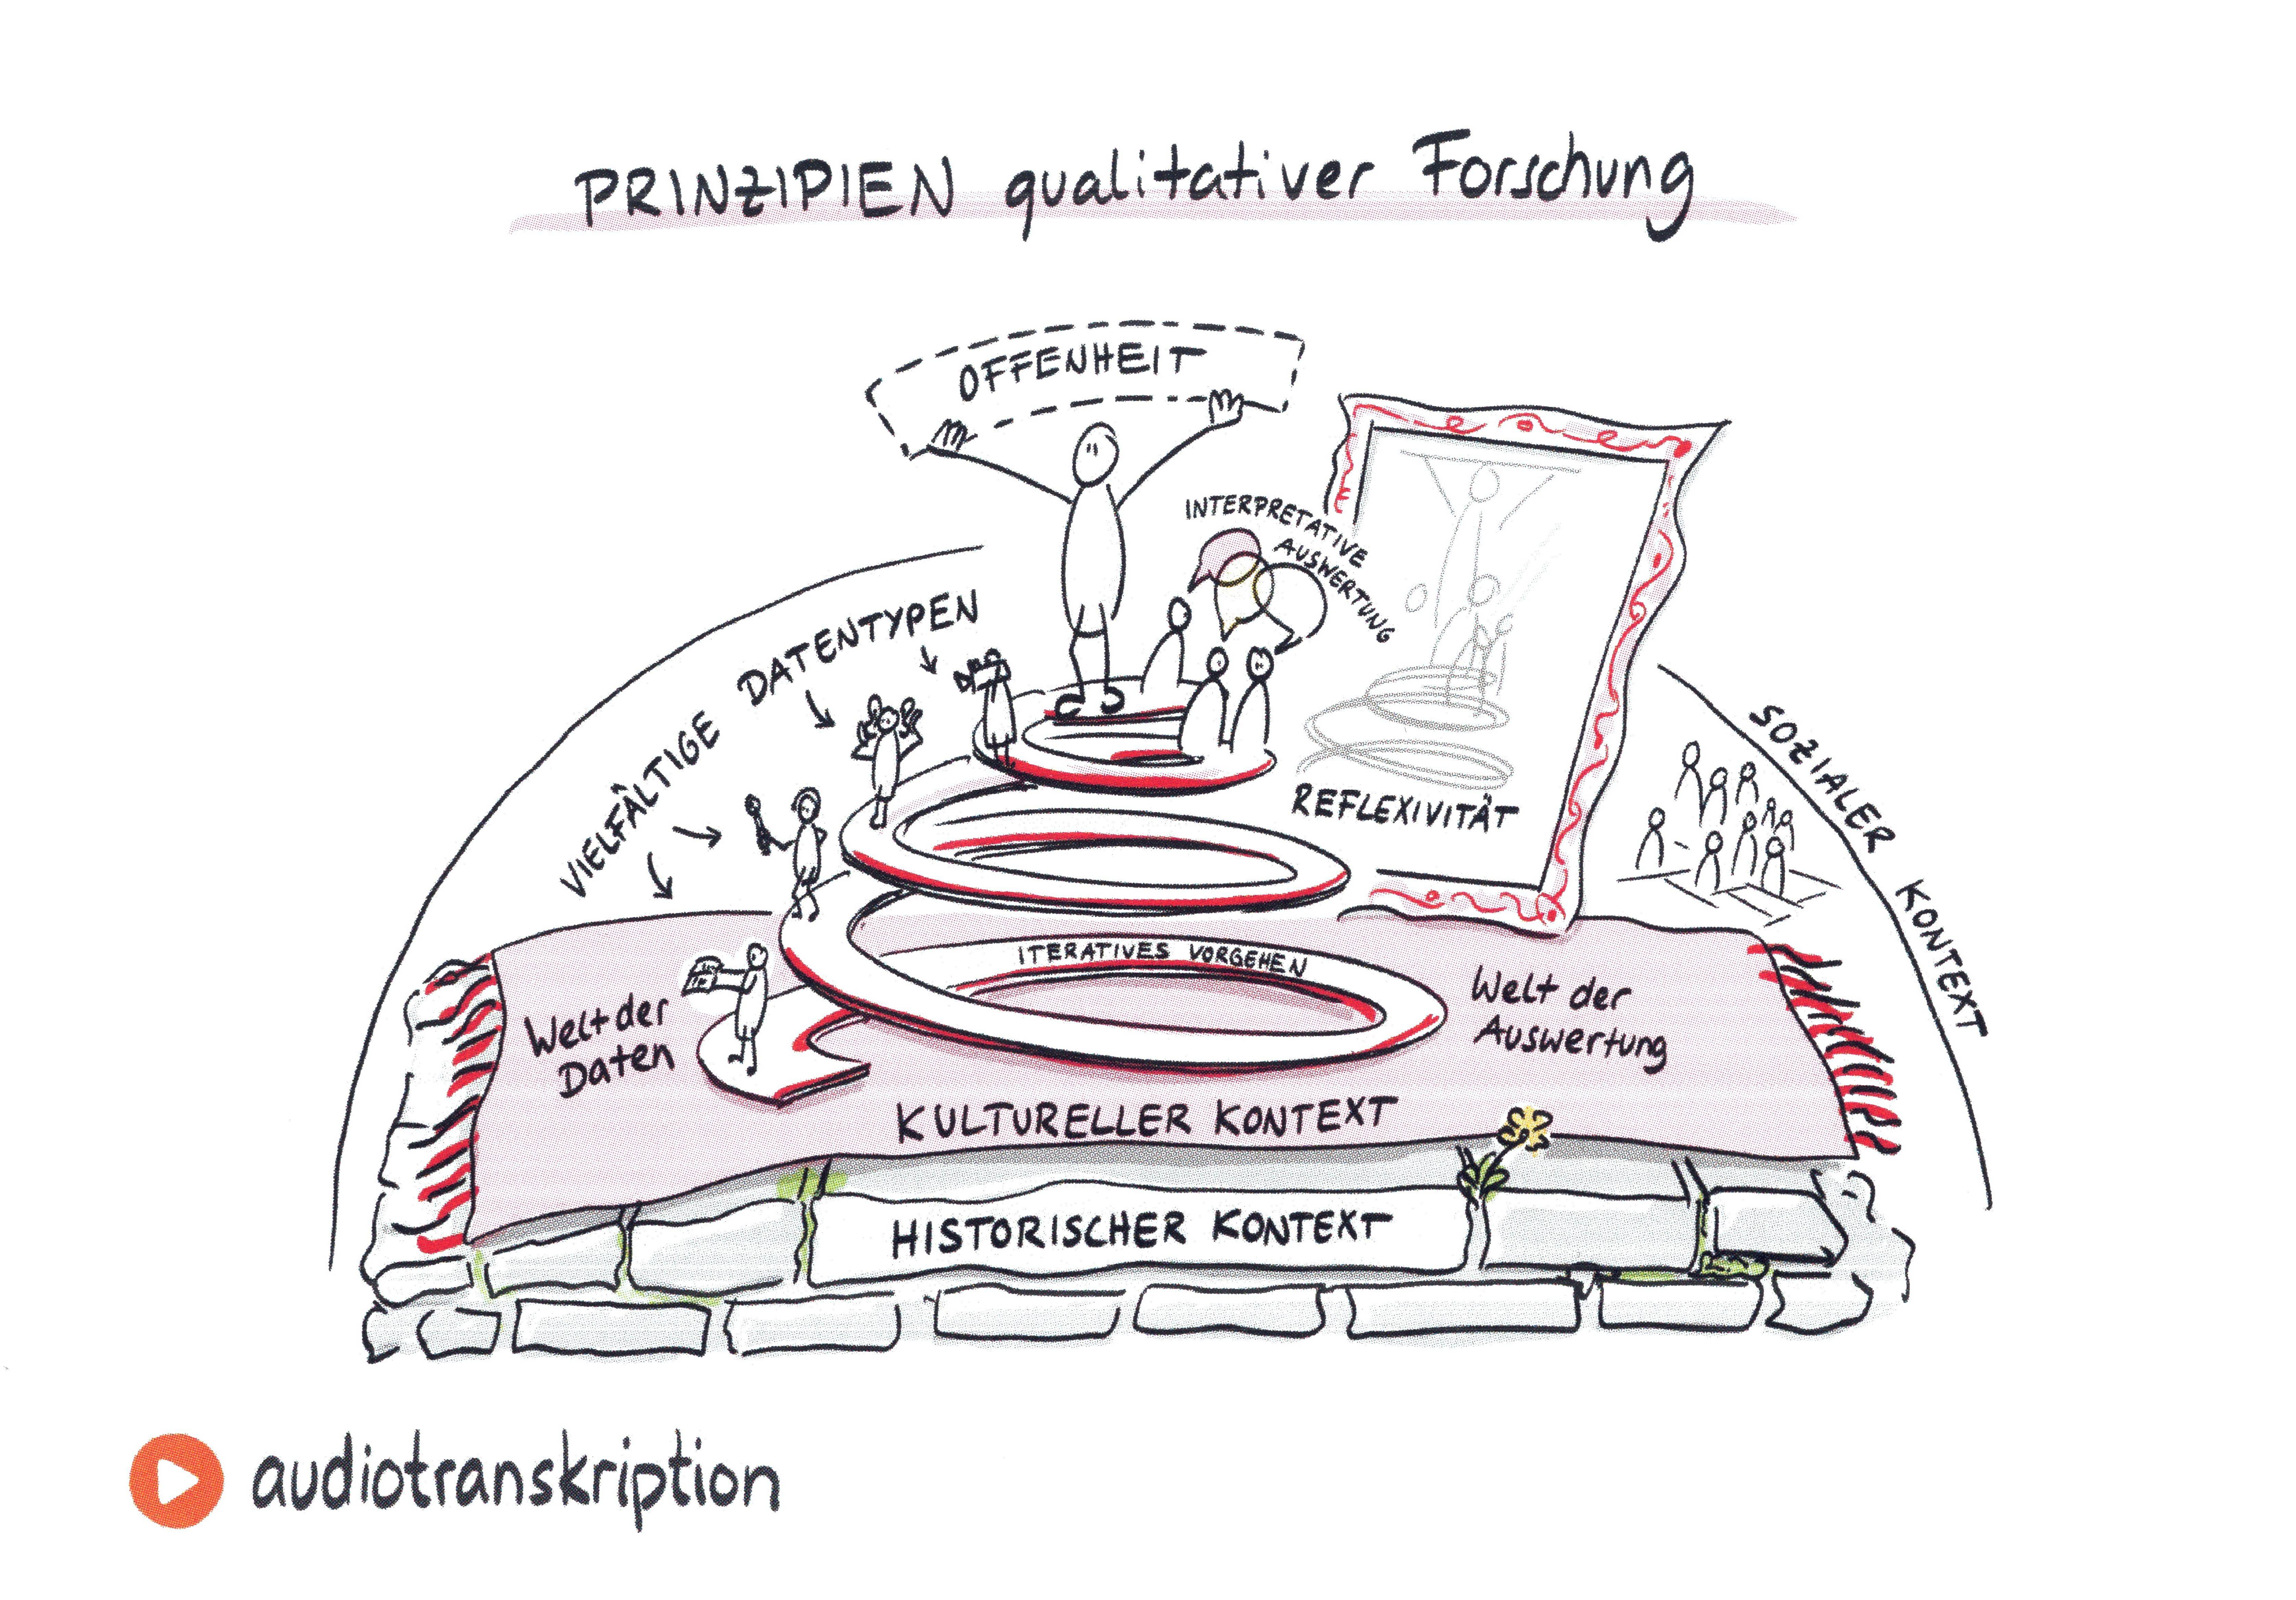 PRINZIPIEN qualitativer Forschung
OFFENHEIT
INTERPRETATIVE
AUSWERTUNG
VIELFÄLTIGE DATENTYPEN
REFLEXIVITÄT
SOZIALER KONTEXT
ITERATIVES VORGEHEN
Welt der
Daten
Welt der
Auswertung
KULTURELLER KONTEXT
HISTORISCHER KONTEXT
audiotranskription